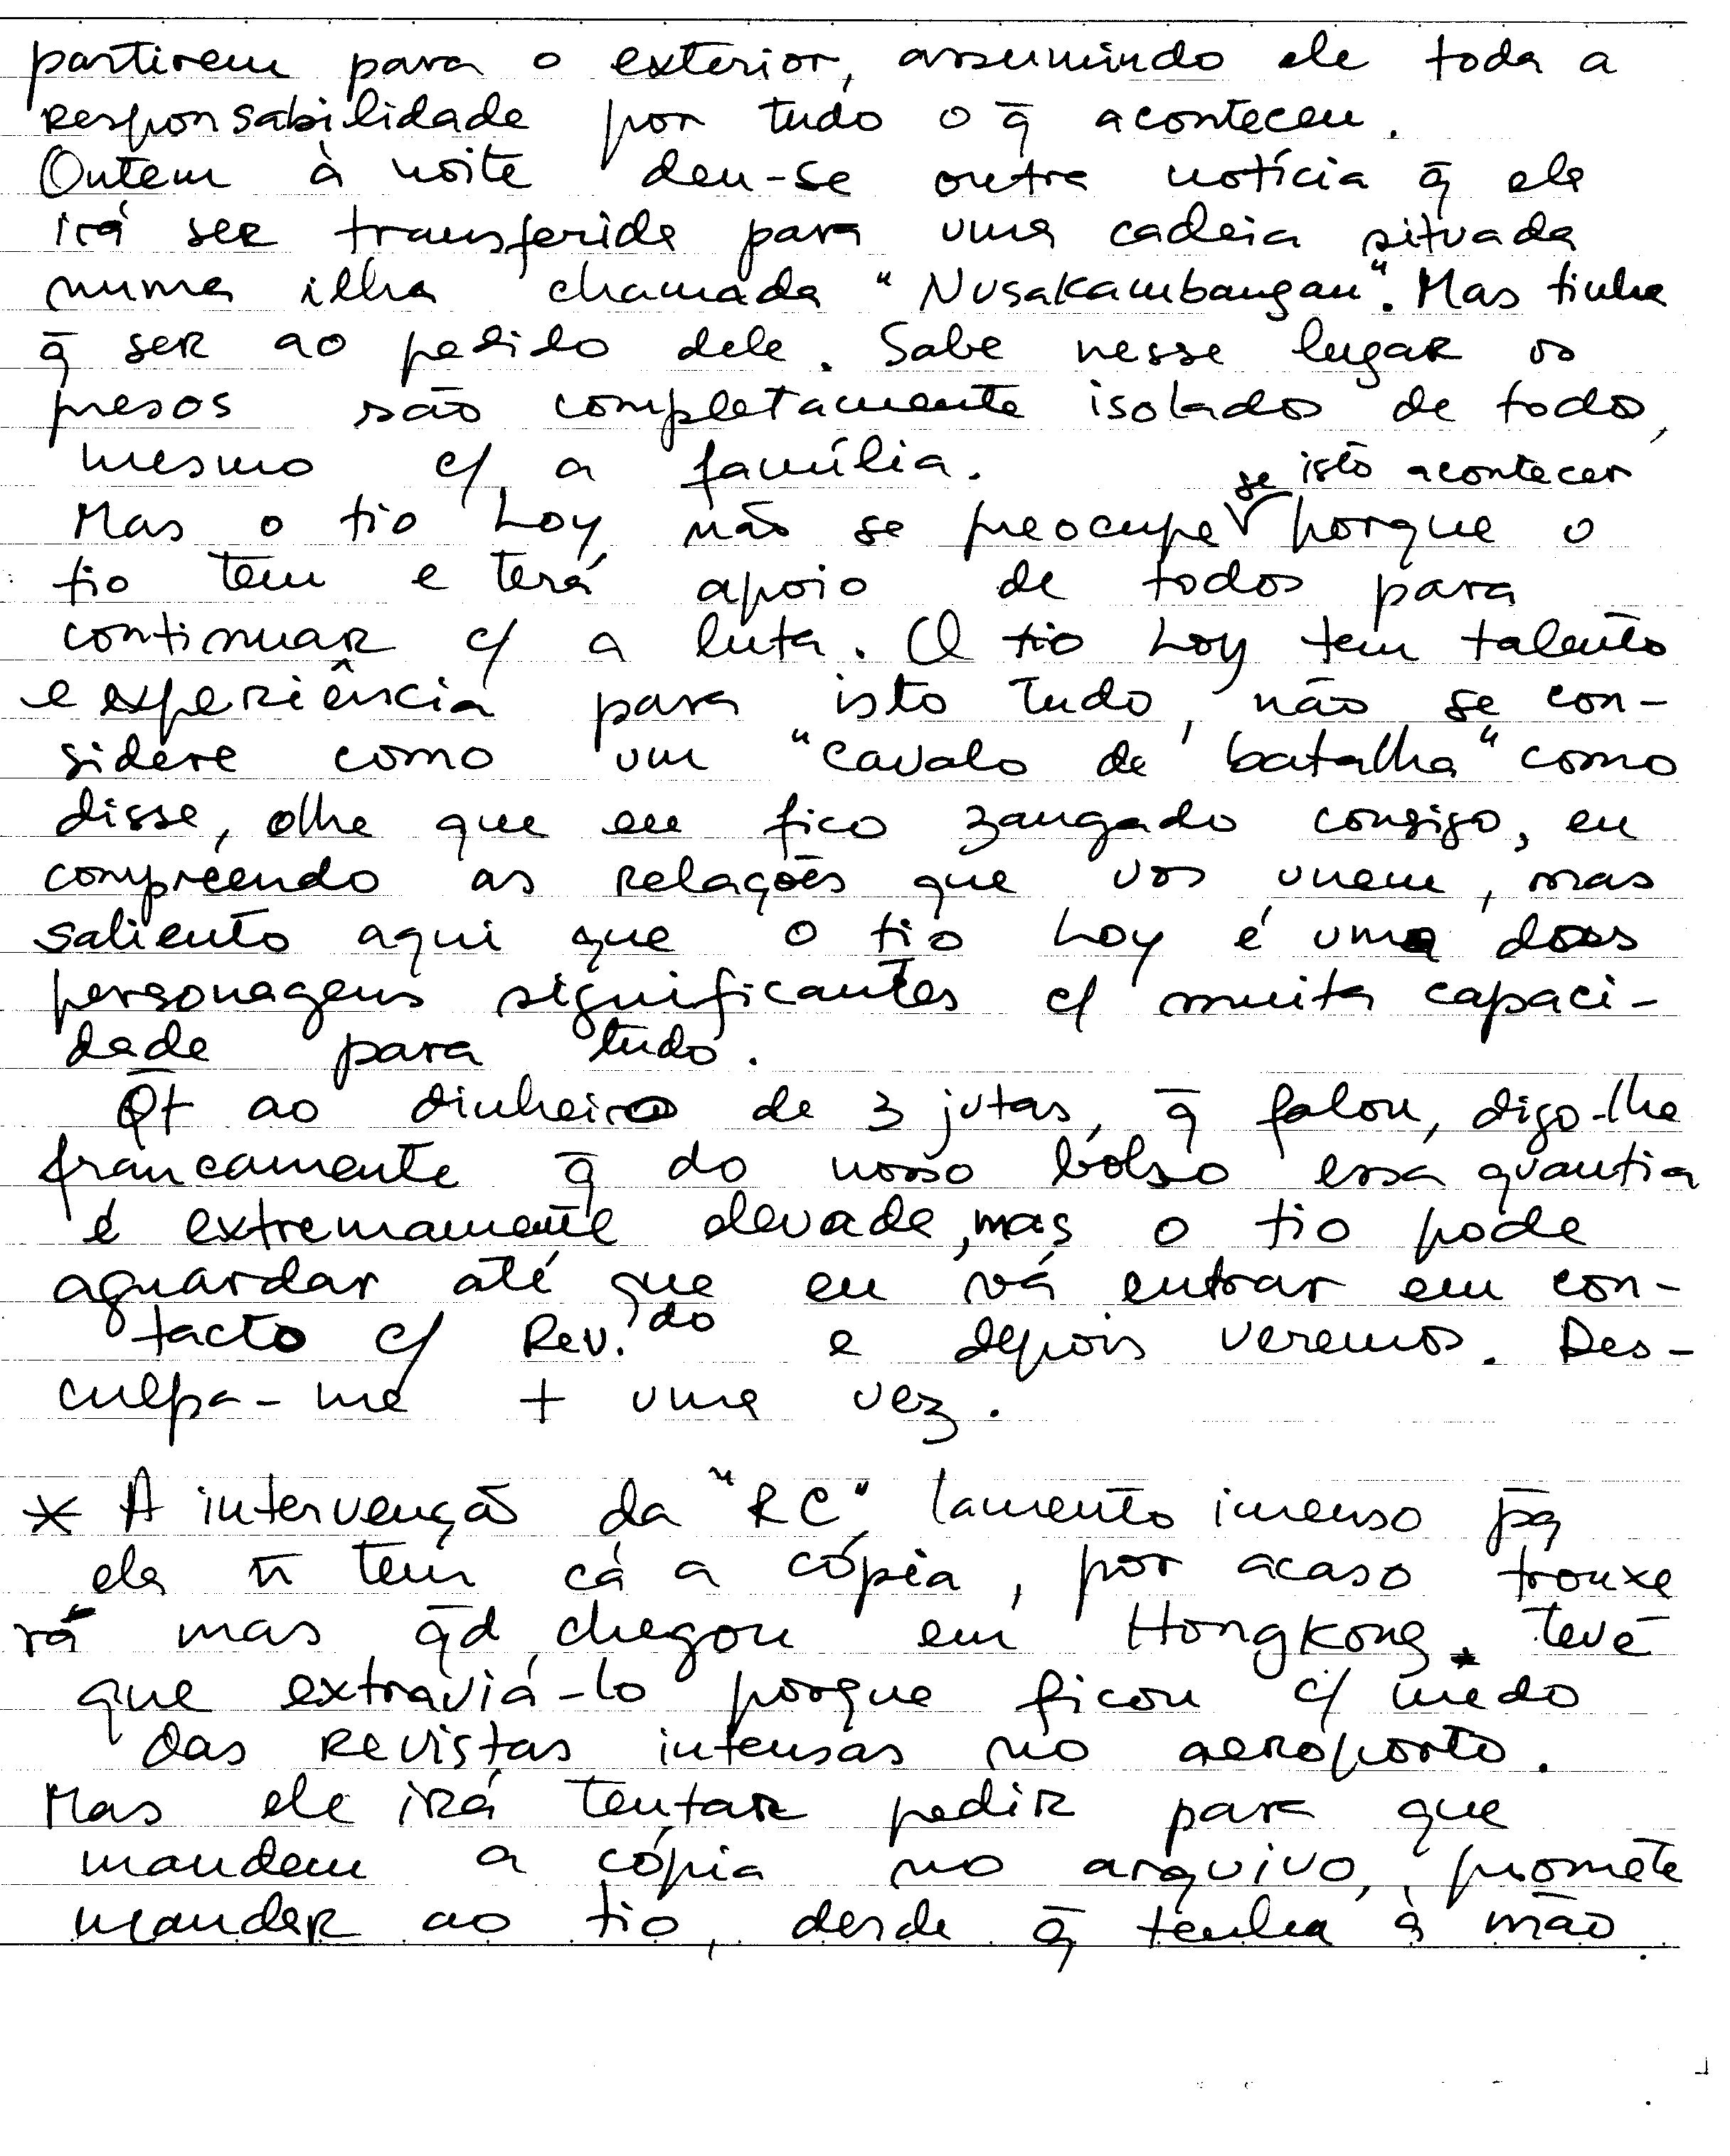 partirem para o exterior, assumindo ele toda a
responsabilidade por tudo o q̄ aconteceu.
Ontem à noite deu-se outra notícia q̄ ele
irá ser transferida para uma cadeia situada
numa ilha chamada "Nusakambangan". Mas tinha
q̄ ser ao pedido dele. Sabe nesse lugar os
presos são completamente isolados de todos,
mesmo c/ a família.
Mas o tio Loy não se preocupe se isto acontecer porque o
tio tem e terá apoio de todos para
continuar c/ a luta. O tio Loy tem talento
e experiência para isto tudo, não se con-
sidere como um "cavalo de batalha" como
disse, olhe que eu fico zangado consigo, eu
compreendo as relações que vos unem, mas
saliento aqui que o tio Loy é uma dos
personagens significantes c/ muita capaci-
dade para tudo.
Qt ao dinheiro de 3 jutas, q̄ falou, digo-lhe
francamente q̄ do nosso bolso essa quantia
é extremamente elevada, mas o tio pode
aguardar até que eu vá entrar em con-
tacto c/ Rev.do e depois veremos. Des-
culpa-me + uma vez.
* A intervenção da "RC", lamento imenso p̄q
ele ñ tem cá a cópia, por acaso trouxe
rá mas q̄d chegou em Hongkong teve
que extraviá-lo porque ficou c/ medo
das revistas intensas no aeroporto.
Mas ele irá tentar pedir para que
mandem a cópia no arquivo, promete
mandar ao tio, desde q̄ tenha à mão.